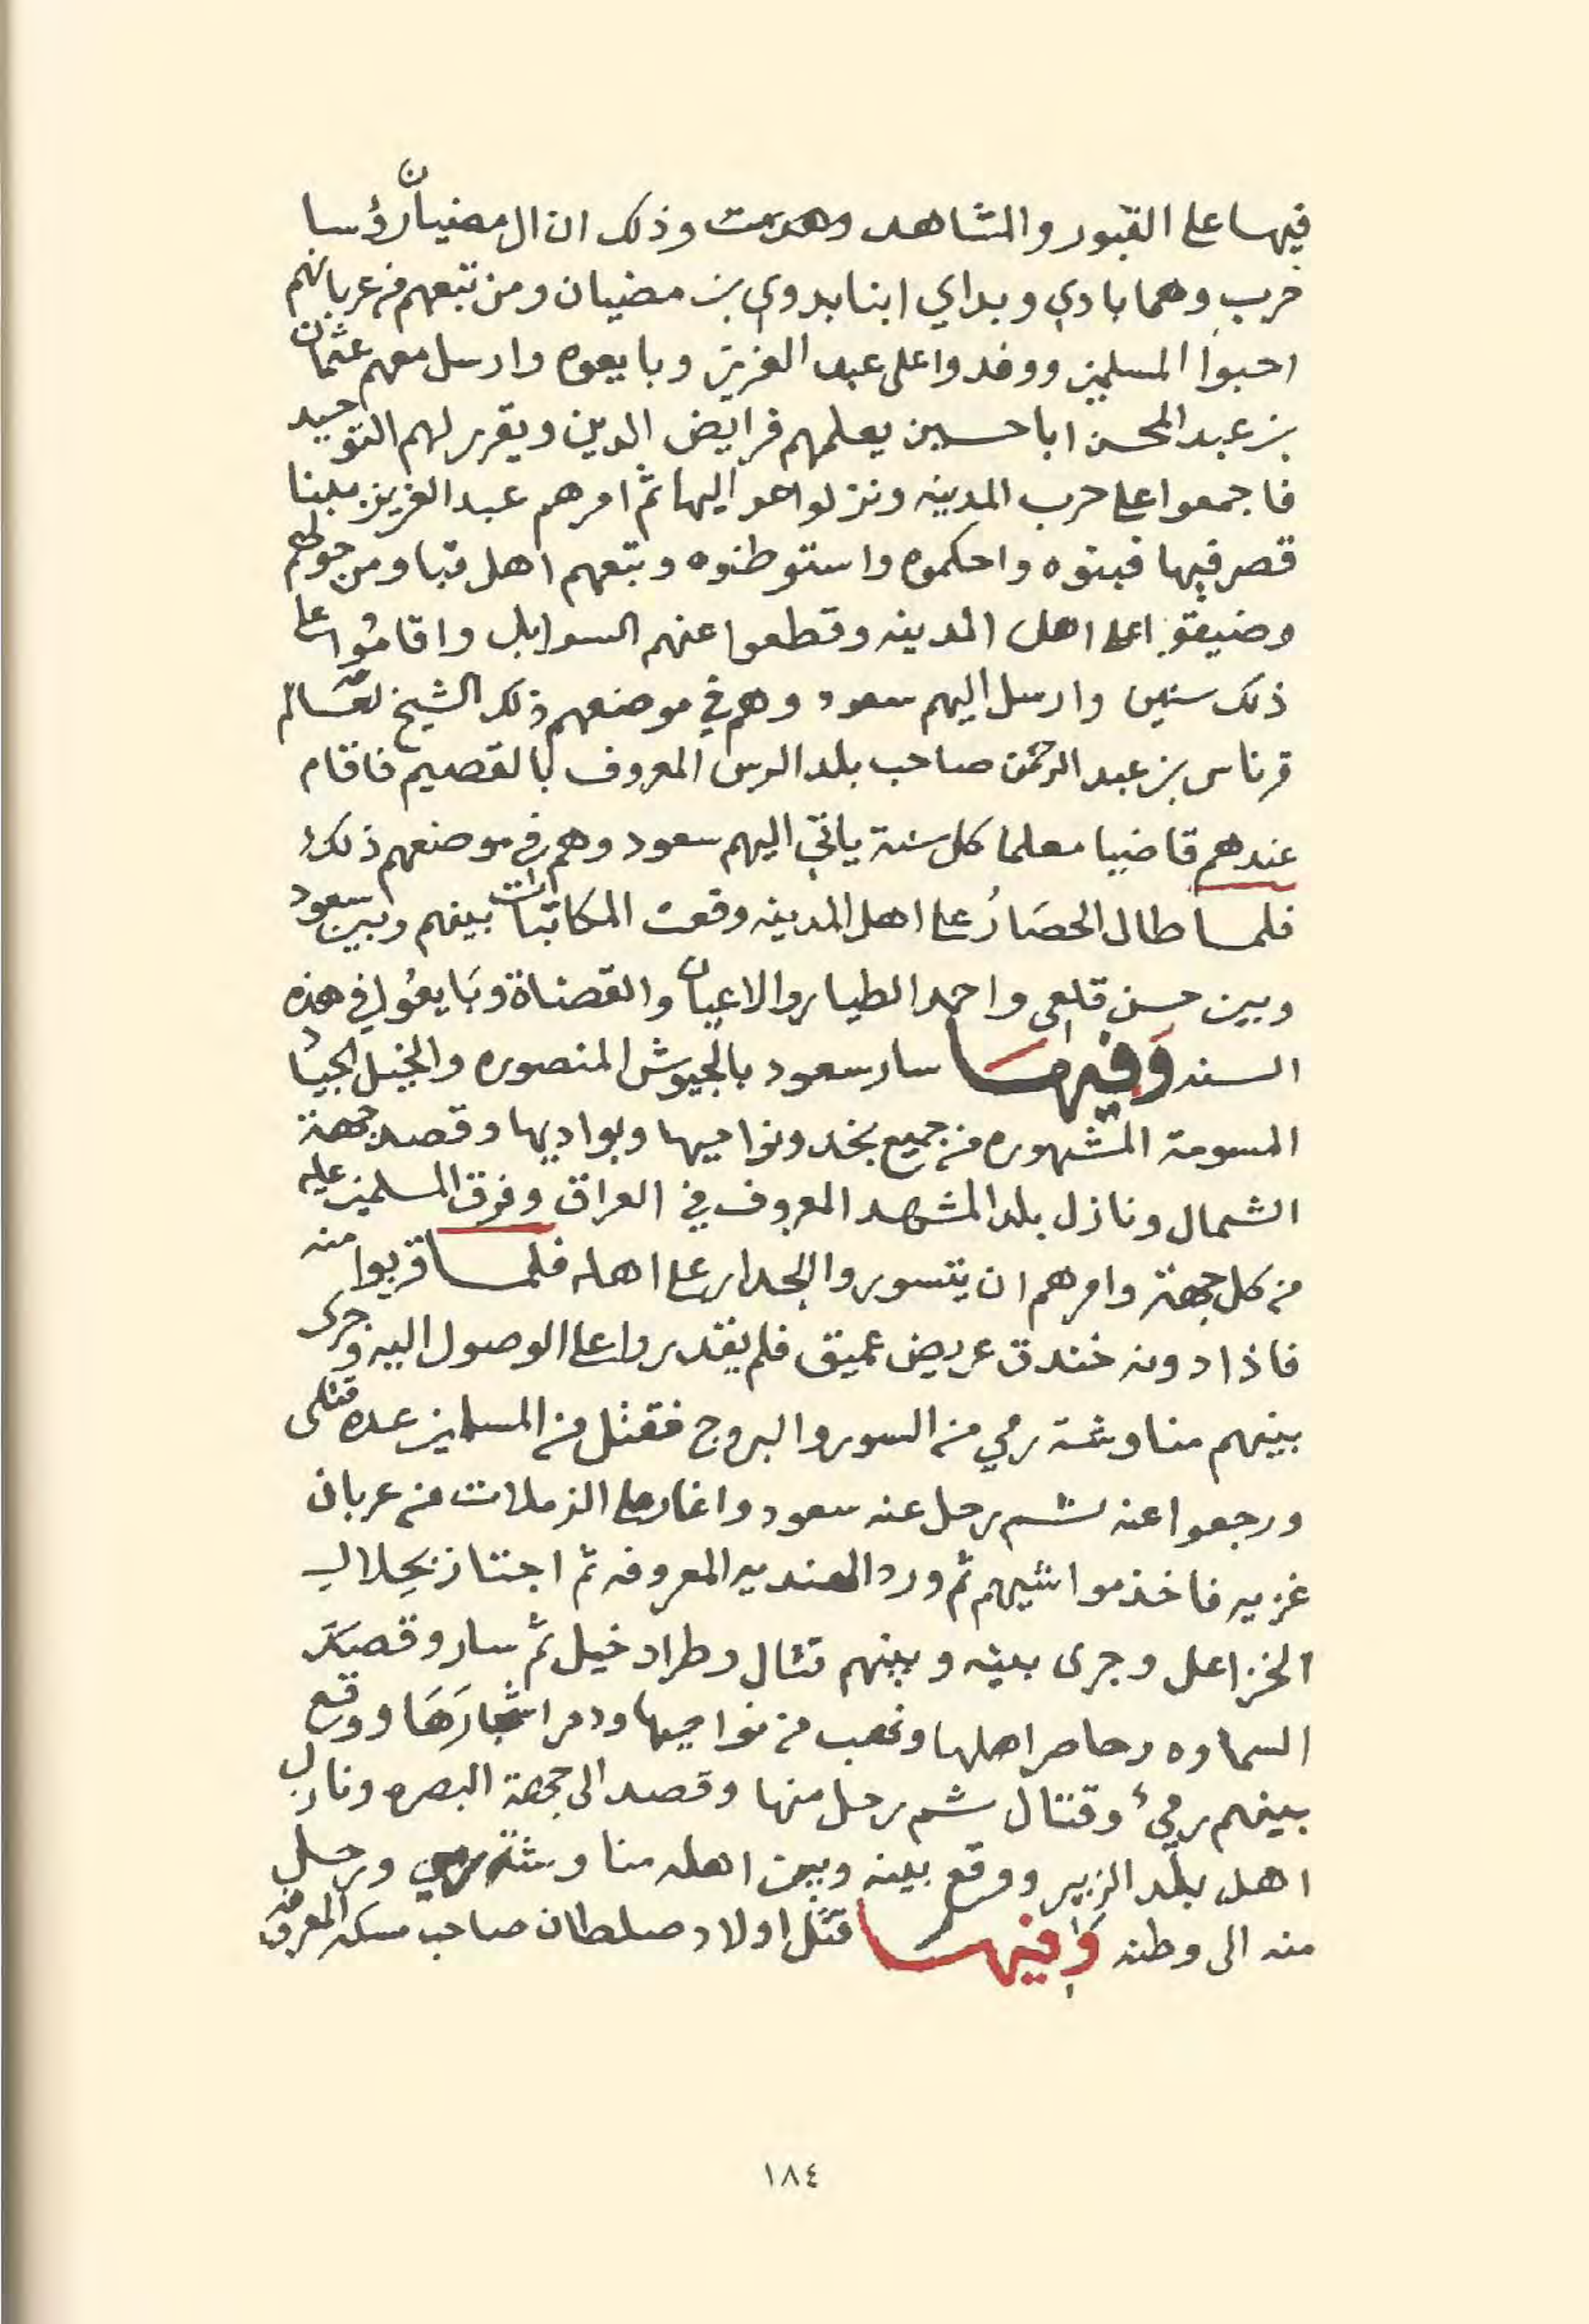 فيها على القبور والمشاهد وهدمت وذلك ان ال مضيان رؤسا
حرب وهما بادي وبداي ابنا بدوي بن مضيان ومن تبعهم من عربانهم
احبوا المسلمين ووفدوا على عبد العزيز وبايعوه وارسل معهم عثمان
بن عبد المحسن ابا حسين يعلمهم فرايض الدين ويقرر لهم التوحيد
فاجمعوا على حرب المدينه ونزلوا عواليها ثم امرهم عبد العزيز ببنا
قصر فيها فبنوه واحكموه واستوطنوه وتبعهم اهل قبا ومن حولهم
وضيقوا على اهل المدينه وقطعوا عنهم السوابل واقاموا على
ذلك سنين وارسل اليهم سعود وهم في موضعهم ذلك الشيخ العالم
قرناس بن عبد الرحمن صاحب بلد الرس المعروف بالقصيم فاقام
عندهم قاضيا معلما كل سنة ياتي اليهم سعود وهم في موضعهم ذلك
فلما طال الحصار على اهل المدينه وقعت المكاتبات بينهم وبين سعود
وبين حسن قلعي واحمد الطيار والاعيان والقضاة وبايعوا في هذه
السنه وفيها سار سعود بالجيوش المنصوره والخيل الجياد
المسومة المشهوره من جميع نجد ونواحيها وبواديها وقصد جهة
الشمال ونازل بلد المشهد المعروف في العراق وفرق المسلمين عليه
من كل جهة وامرهم ان يتسوروا الجدار على اهله فلما قربوا منه
فاذا دونه خندق عريض عميق فلم يقدروا على الوصول اليه وجرى
بينهم مناوشة رمي من السور والبروج فقتل من المسلمين عده قتلى
ورجعوا عنه ثم رحل عنه سعود واغار على الزملات من عربان
غزيه فاخذ مواشيهم ثم ورد الهنديه المعروفه ثم اجتاز بحلال
الخزاعل وجرى بينه وبينهم قتال وطراد خيل ثم سار وقصد
السماوه وحاصر اهلها ونهب من نواحيها ودمر اشجارها ووقع
بينهم رمي وقتال ثم رحل منها وقصد الى جهة البصره ونازل
اهل بلد الزبير ووقع بينه وبين اهله مناوشة رمي ورحل
منه الى وطنه وفيها قتل اولاد صلطان صاحب مسكه المعروف
١٨٤